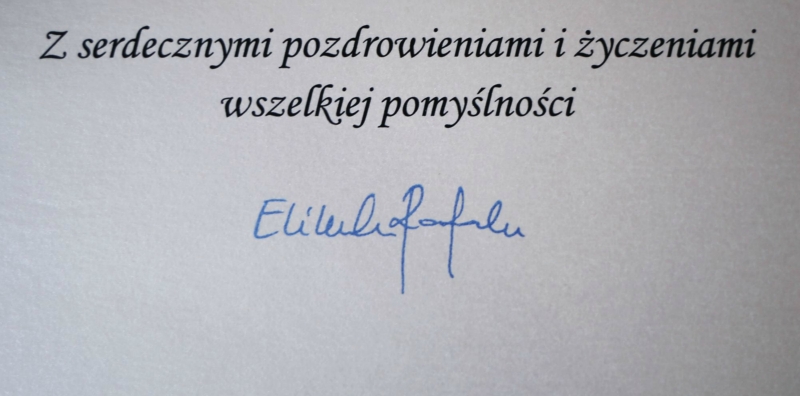 Z serdecznymi pozdrowieniami i życzeniami
wszelkiej pomyślności